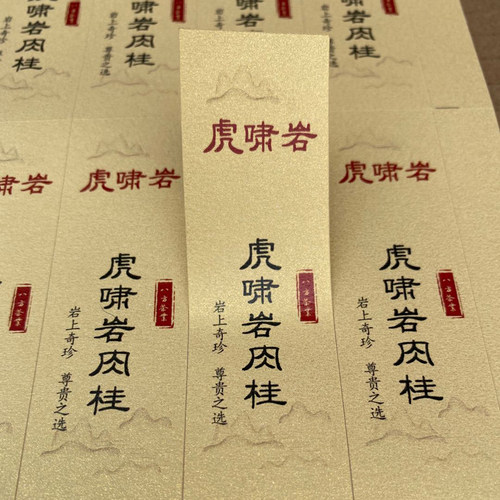 虎啸岩肉桂
岩上奇珍
尊贵之选
虎啸岩肉桂
岩上奇珍 尊贵之选
虎啸岩肉桂
岩上奇珍 尊贵之选
虎啸岩
虎啸岩
虎啸岩
虎啸岩肉桂
岩上奇珍 尊贵之选
虎啸岩肉桂
岩上奇珍 尊贵之选
虎啸岩肉桂
岩上奇珍 尊贵之选